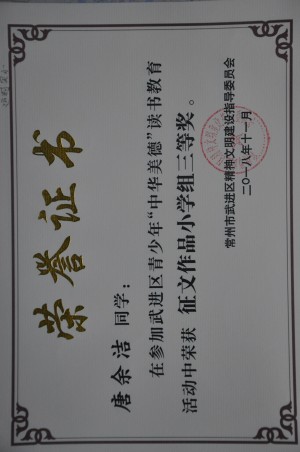 荣誉证书
唐余洁 同学：
在参加武进区青少年“中华美德”读书教育
活动中荣获 征文作品小学组三等奖。
常州市武进区精神文明建设指导委员会
二〇一八年十一月